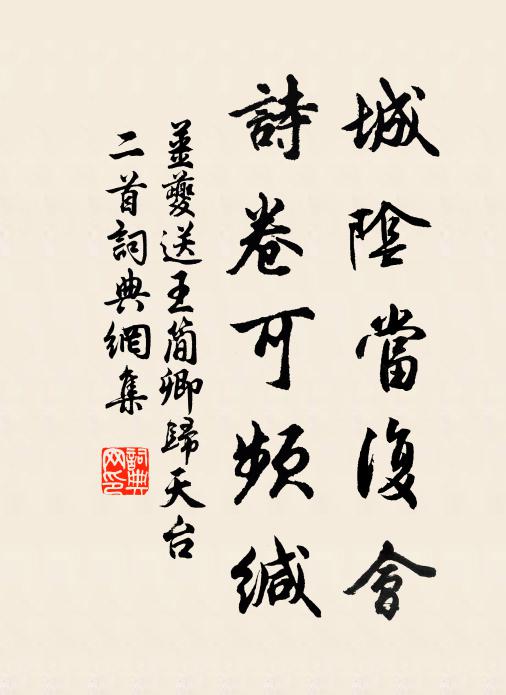 城陰當復會
詩卷可頻緘
姜夔送王简卿歸天台
二首詞典網集
詞典网印